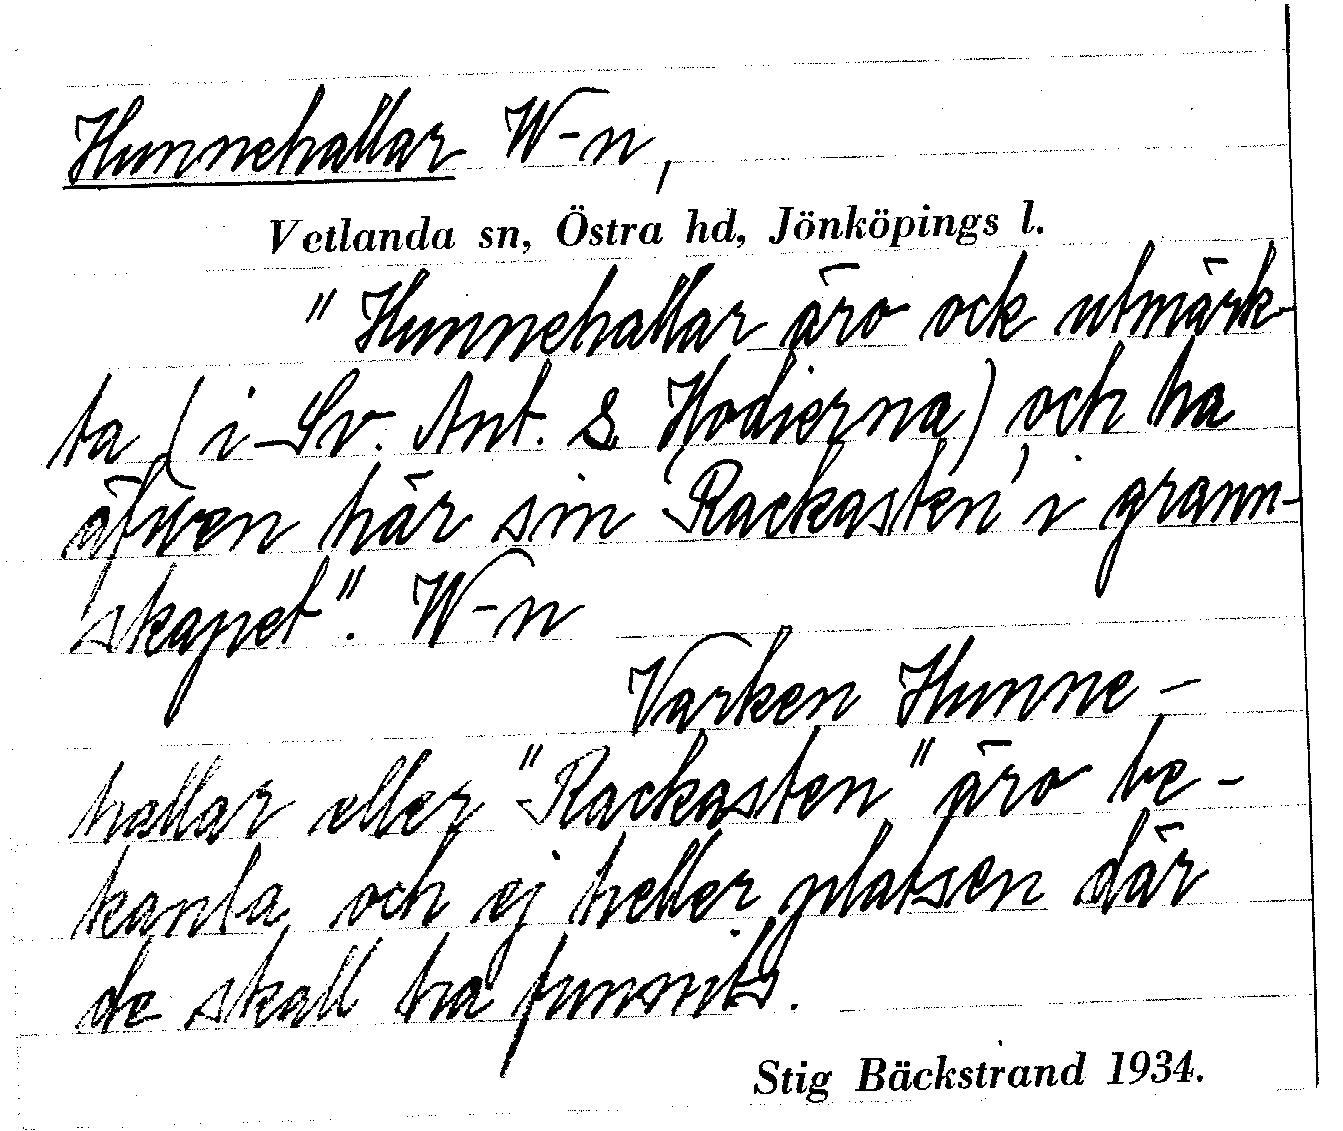 Hunnehallar W-n,
Vetlanda sn, Östra hd, Jönköpings l.
"Hunnehallar äro ock utmärk-
ta (i Sv. Ant. & Hodierna), och ha
äfwen här sin 'Rackasten' i grann-
skapet". W-n
Varken Hunne-
hallar eller "Rackasten" äro be-
kanta och ej heller platsen där
de skall ha funnits.
Stig Bäckstrand 1934.